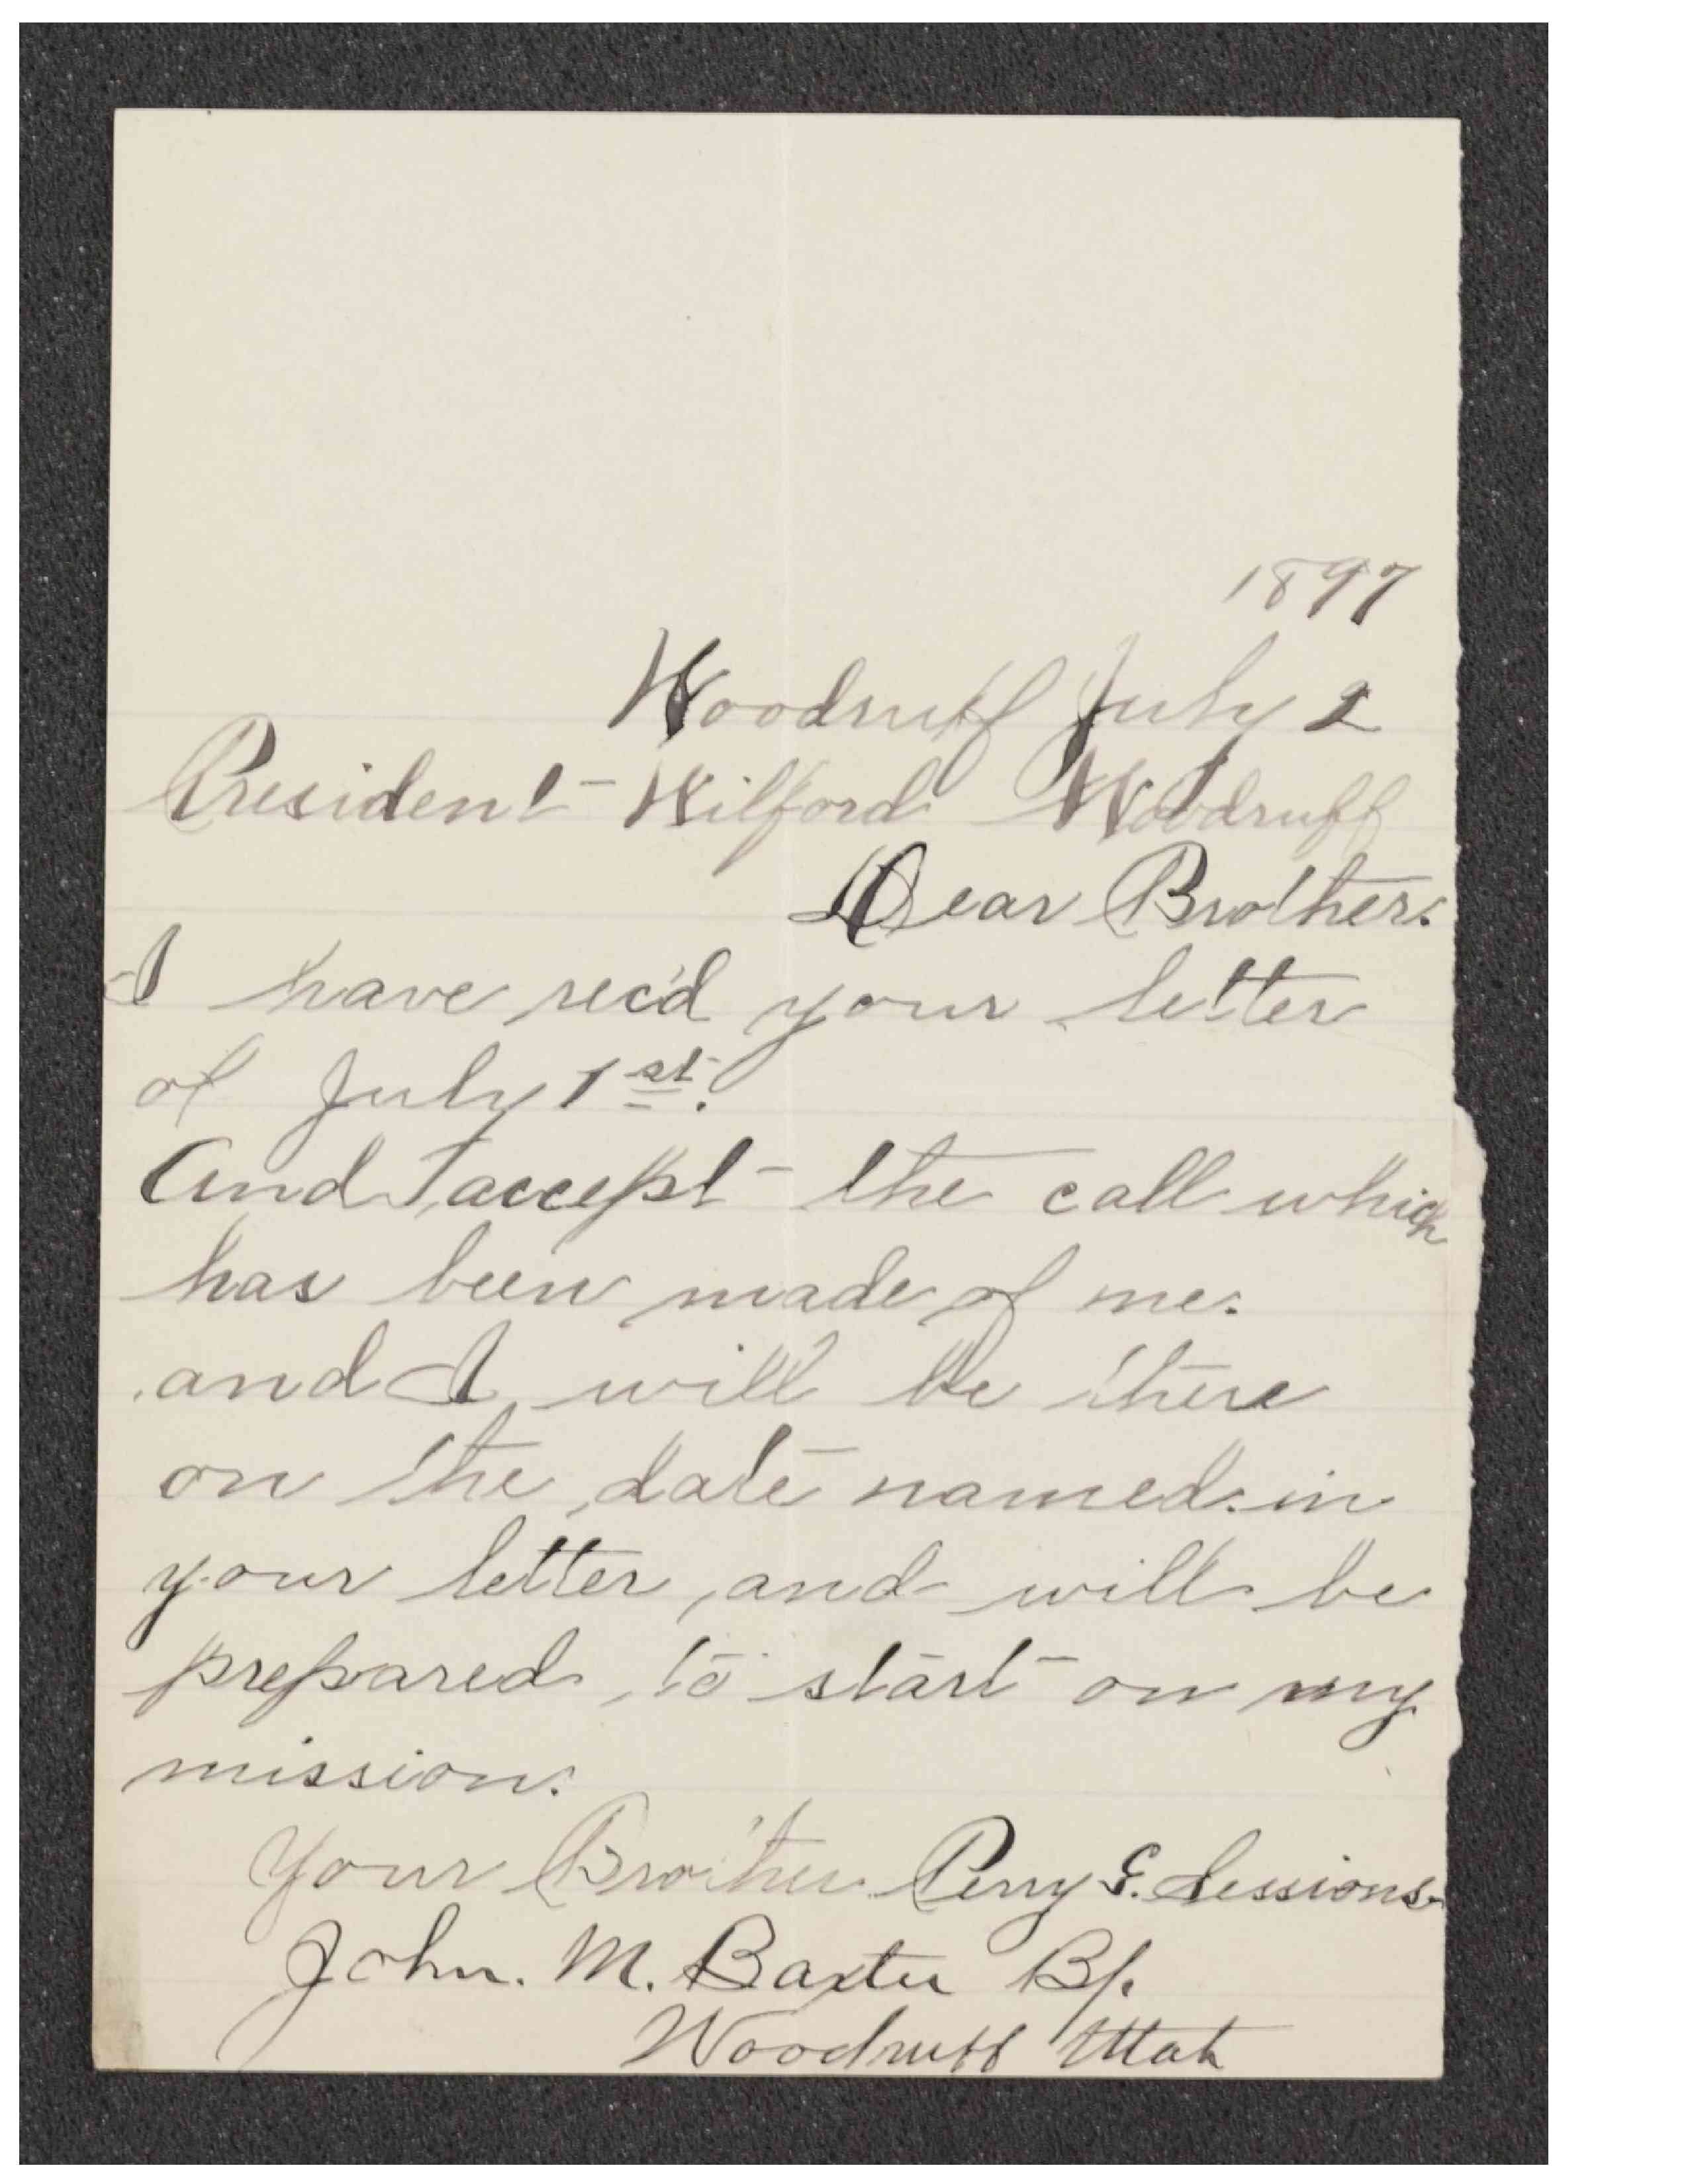 1897
Woodruff July 2
President Wilford Woodruff
Dear Brother.
I have rec'd your letter
of July 1st.
And I accept the call which
has been made of me.
and I will be there
on the date named. in
your letter, and will be
prepared, to start on my
mission.
Your Brother Perry E. Sessions.
John. M. Baxter Bp.
Woodruff Utah